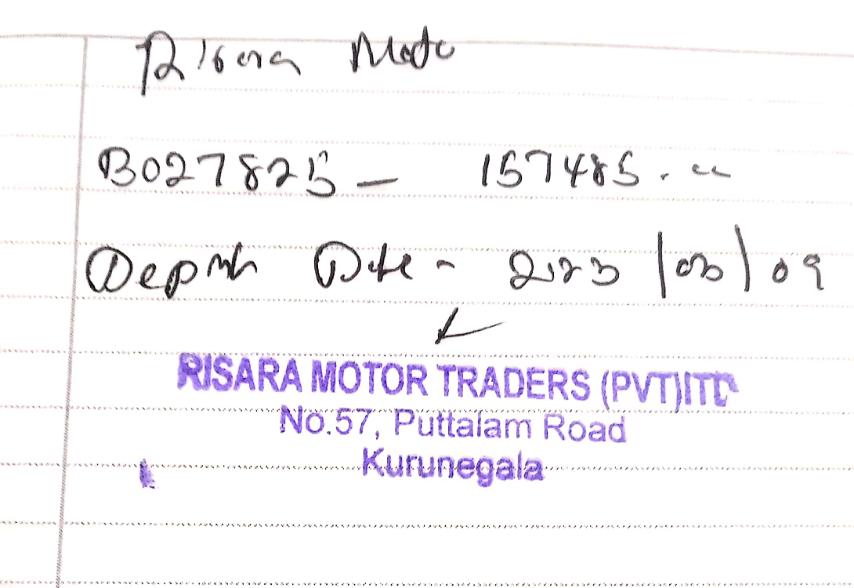 Risara Moto
B027825 - 157485.00
Deposit Date - 2023/03/09
RISARA MOTOR TRADERS (PVT)LTD
No.57, Puttalam Road
Kurunegala